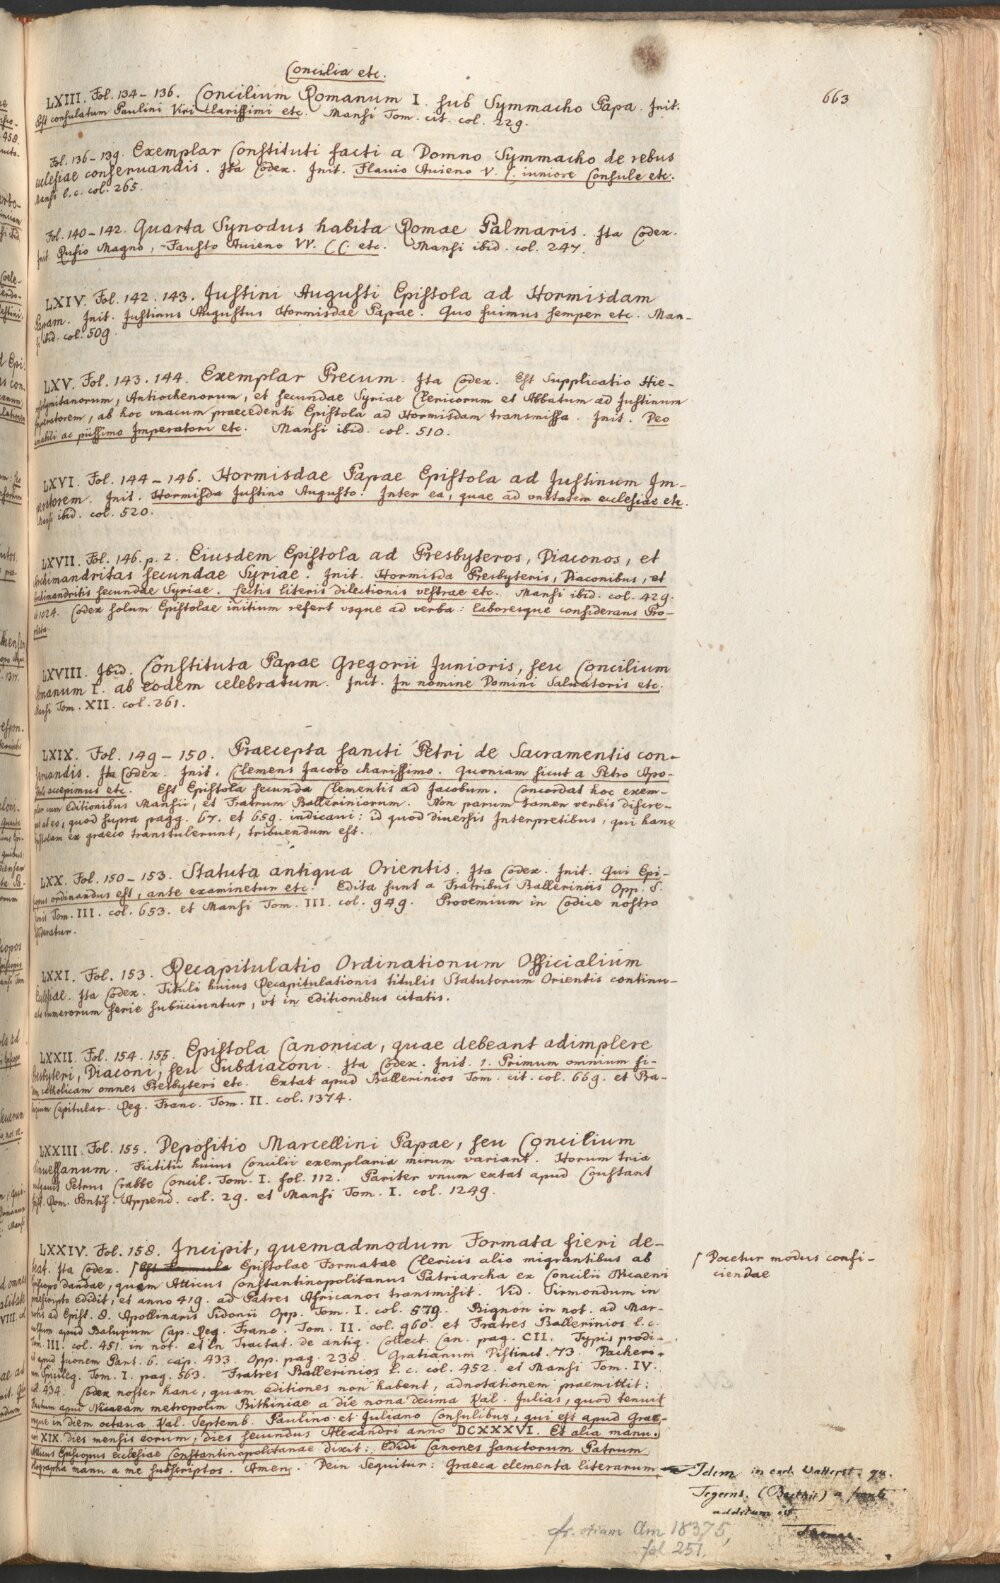 Concilia etc.
663
LXIII. Fol. 134–136. Concilium Romanum I. sub Symmacho Papa. Init.
Post consulatum Paulini Viri clarissimi etc. Mansi Tom. cit. col. 229.
Fol. 136–139. Exemplar Constituti facti a Domno Symmacho de rebus
ecclesiae conseruandis. Ita Codex. Init. Flauio Auieno V. C. iuniore Consule etc.
Mansi l. c. col. 265.
Fol. 140–142. Quarta Synodus habita Romae Palmaris. Ita Codex.
Init. Rufio Magno, Fausto Auieno VV. CC. etc. Mansi ibid. col. 247.
LXIV. Fol. 142. 143. Justini Augusti Epistola ad Hormisdam
Papam. Init. Justinus Augustus Hormisdae Papae. Quo fuimus semper etc. Man-
si ibid. col. 509.
LXV. Fol. 143. 144. Exemplar Precum. Ita Codex. Est Supplicatio Hie-
rosolymitanorum, Antiochenorum, et secundae Syriae Clericorum et Abbatum ad Justinum
Imperatorem, ab hoc vnacum praecedenti Epistola ad Hormisdam transmissa. Init. Deo
amabili ac piissimo Imperatori etc. Mansi ibid. col. 510.
LXVI. Fol. 144–146. Hormisdae Papae Epistola ad Justinum Im-
peratorem. Init. Hormisda Justino Augusto: Inter ea, quae ad vnitatem ecclesiae etc.
Mansi ibid. col. 520.
LXVII. Fol. 146. p. 2. Eiusdem Epistola ad Presbyteros, Diaconos, et
Archimandritas secundae Syriae. Init. Hormisda Presbyteris, Diaconibus, et
Archimandritis secundae Syriae. Lectis literis dilectionis vestrae etc. Mansi ibid. col. 429.
et 1024. Codex solum Epistolae initium refert vsque ad verba: laboresque considerans Pro-
LXVIII. Ibid. Constituta Papae Gregorii Junioris, seu Concilium
Romanum I. ab eodem celebratum. Init. In nomine Domini Saluatoris etc.
Mansi Tom. XII. col. 261.
LXIX. Fol. 149–150. Praecepta sancti Petri de Sacramentis con-
seruandis. Ita Codex. Init. Clemens Jacobo charissimo. Quoniam sicut a Petro Apo-
stolo accepimus etc. Est Epistola secunda Clementis ad Jacobum. Concordat hoc exem-
plar cum Editionibus Mansii, et Fratrum Balleriniorum. Non parum tamen verbis discre-
pat ab eo, quod supra pagg. 67. et 659. indicaui: id quod diuersis Interpretibus, qui hanc
Epistolam ex graeco transtulerunt, tribuendum est.
LXX. Fol. 150–153. Statuta antiqua Orientis. Ita Codex. Init. Qui Epi-
scopus ordinandus est, ante examinetur etc. Edita sunt a Fratribus Balleriniis Opp. S.
Leonis Tom. III. col. 653. et Mansi Tom. III. col. 949. Prooemium in Codice nostro
desideratur.
LXXI. Fol. 153. Recapitulatio Ordinationum Officialium
Ecclesiae. Ita Codex. Tituli huius Recapitulationis titulis Statutorum Orientis continu-
ata numerorum serie subiiciuntur, vt in editionibus citatis.
LXXII. Fol. 154. 155. Epistola Canonica, quae debeant adimplere
Presbyteri, Diaconi, seu Subdiaconi. Ita Codex. Init. 1. Primum omnium fi-
dem catholicam omnes Presbyteri etc. Extat apud Ballerinios Tom. cit. col. 669. et Ba-
luzium Capitular. Reg. Franc. Tom. II. col. 1374.
LXXIII. Fol. 155. Depositio Marcellini Papae, seu Concilium
Sinuessanum. Fictitii huius Concilii exemplaria mirum variant. Horum tria
Petrus Crabbe Concil. Tom. I. fol. 112. Pariter vnum extat apud Coustant
Epist. Rom. Pontif. Append. col. 29. et Mansi Tom. I. col. 1249.
LXXIV. Fol. 158. Incipit, quemadmodum Formata fieri de-
beat. Ita Codex. Epistolae Formatae Clericis alio migrantibus ab
Episcopo dandae, quam Atticus Constantinopolitanus Patriarcha ex Concilii Nicaeni
praescripto edidit, et anno 419. ad Patres Africanos transmisit. Vid. Sirmondum in
notis ad Epist. 8. Apollinaris Sidonii Opp. Tom. I. col. 579. Bignon in not. ad Mar-
culfum apud Baluzium Cap. Reg. Franc. Tom. II. col. 960. et Fratres Ballerinios l. c.
Tom. III. col. 451. in not. et in Tractat. de antiq. Collect. Can. pag. CII. Typis prodi-
it apud Iuonem Part. 6. cap. 433. Opp. pag. 238. Gratianum Distinct. 73. Dacheri-
um Spicileg. Tom. I. pag. 563. Fratres Ballerinios l. c. col. 452. et Mansi Tom. IV.
col. 434. Codex noster hanc, quam editiones non habent, adnotationem praemittit:
apud Nicaeam metropolim Bithiniae a die nona decima Kal. Julias, quod tenuit
vsque in diem octaua Kal. Septemb. Paulino et Juliano Consulibus, qui est apud Grae-
cos XIX. dies mensis eorum, dies secundus Alexandri anno DCXXXVI. Et alia manu.
Atticus Episcopus ecclesiae Constantinopolitanae dixit: Edidi Canones sanctorum Patrum
manu a me subscriptos. Amen. Dein sequitur: Graeca elementa literarum
Docetur modus confi-
ciendae
Idem in cod. Wallerst. qu.
Tegerns. a fronte
additum est
cfr. etiam Clm 18375,
fol 251.